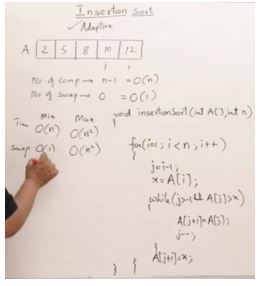 Insertion Sort
✓ Adaptive
A 2 5 8 10 12
j i
No of Comp → n-1 = O(n)
No of swap → 0 = O(1)
Min Max
Time O(n) O(n²)
swap O(1) O(n²)
void insertionSort(int A[], int n)
{
for(i=1; i<n; i++)
{
j=i-1;
x=A[i];
while(j>-1 && A[j]>x)
{
A[j+1]=A[j];
j--;
}
A[j+1]=x;
}
}